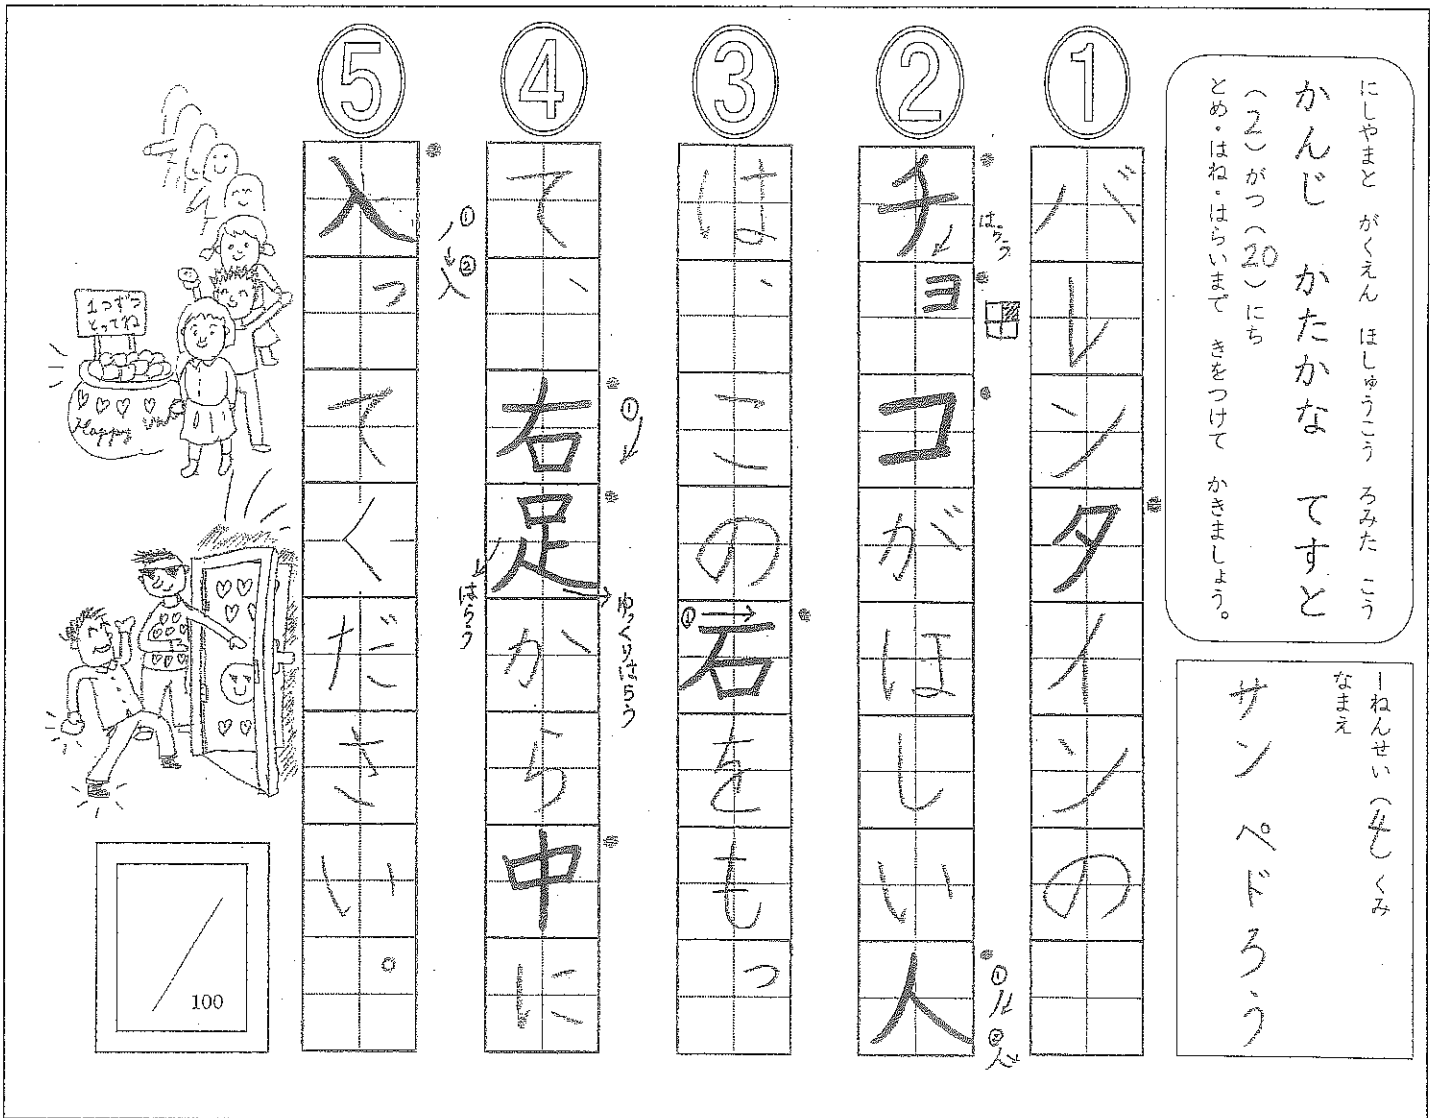 にしやまと がくえん ほしゅうこう ろみた こう
かんじ かたかな てすと
(2)がつ(20)にち
とめ・はね・はらいまで きをつけて かきましょう。
一ねんせい(4)くみ
なまえ
サン ペドろう
①
バレンタインの
②
チョコがほしい人
はらう
①
②人
③
は、この石をもっ
①
④
て、右足から中に
①
はらう
ゆっくりはらう
⑤
入ってください。
①ノ→②入
1つずつ
とってね
Happy
100